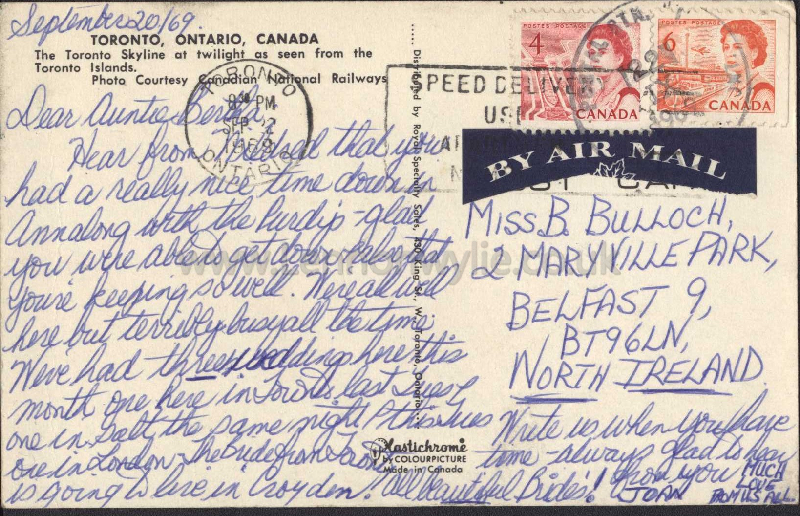 September 20/69.
TORONTO, ONTARIO, CANADA
The Toronto Skyline at twilight as seen from the
Toronto Islands.
Photo Courtesy Canadian National Railways
Dear Auntie
Hear from that you
had a really nice time down in
Annalong with the - glad
you were able to get down & also that
you're keeping so well. We're all well
here but terribly busy all the time.
We've had three weddings here this
month one here in last Tues &
one in the same night & this Tues
one in London - The Bride from
is going to live in Croydon. All beautiful Brides!
Distributed by Royal Specialty Sales, King St. W., Toronto, Ontario
Plastichrome
by COLOURPICTURE
Made in Canada
TORONTO
PM
SEP 22
1969
ONTARIO
SPEED DELIVERY
USE
POSTES POSTAGE
4
CANADA
6
CANADA
BY AIR MAIL
MISS B. BULLOCH,
2 MARYVILLE PARK,
BELFAST 9,
BT96LN,
NORTH IRELAND.
Write us when you have
time - always glad to hear
from you
JOAN
MUCH
LOVE
FROM US ALL.
www.bennettwylie.co.uk